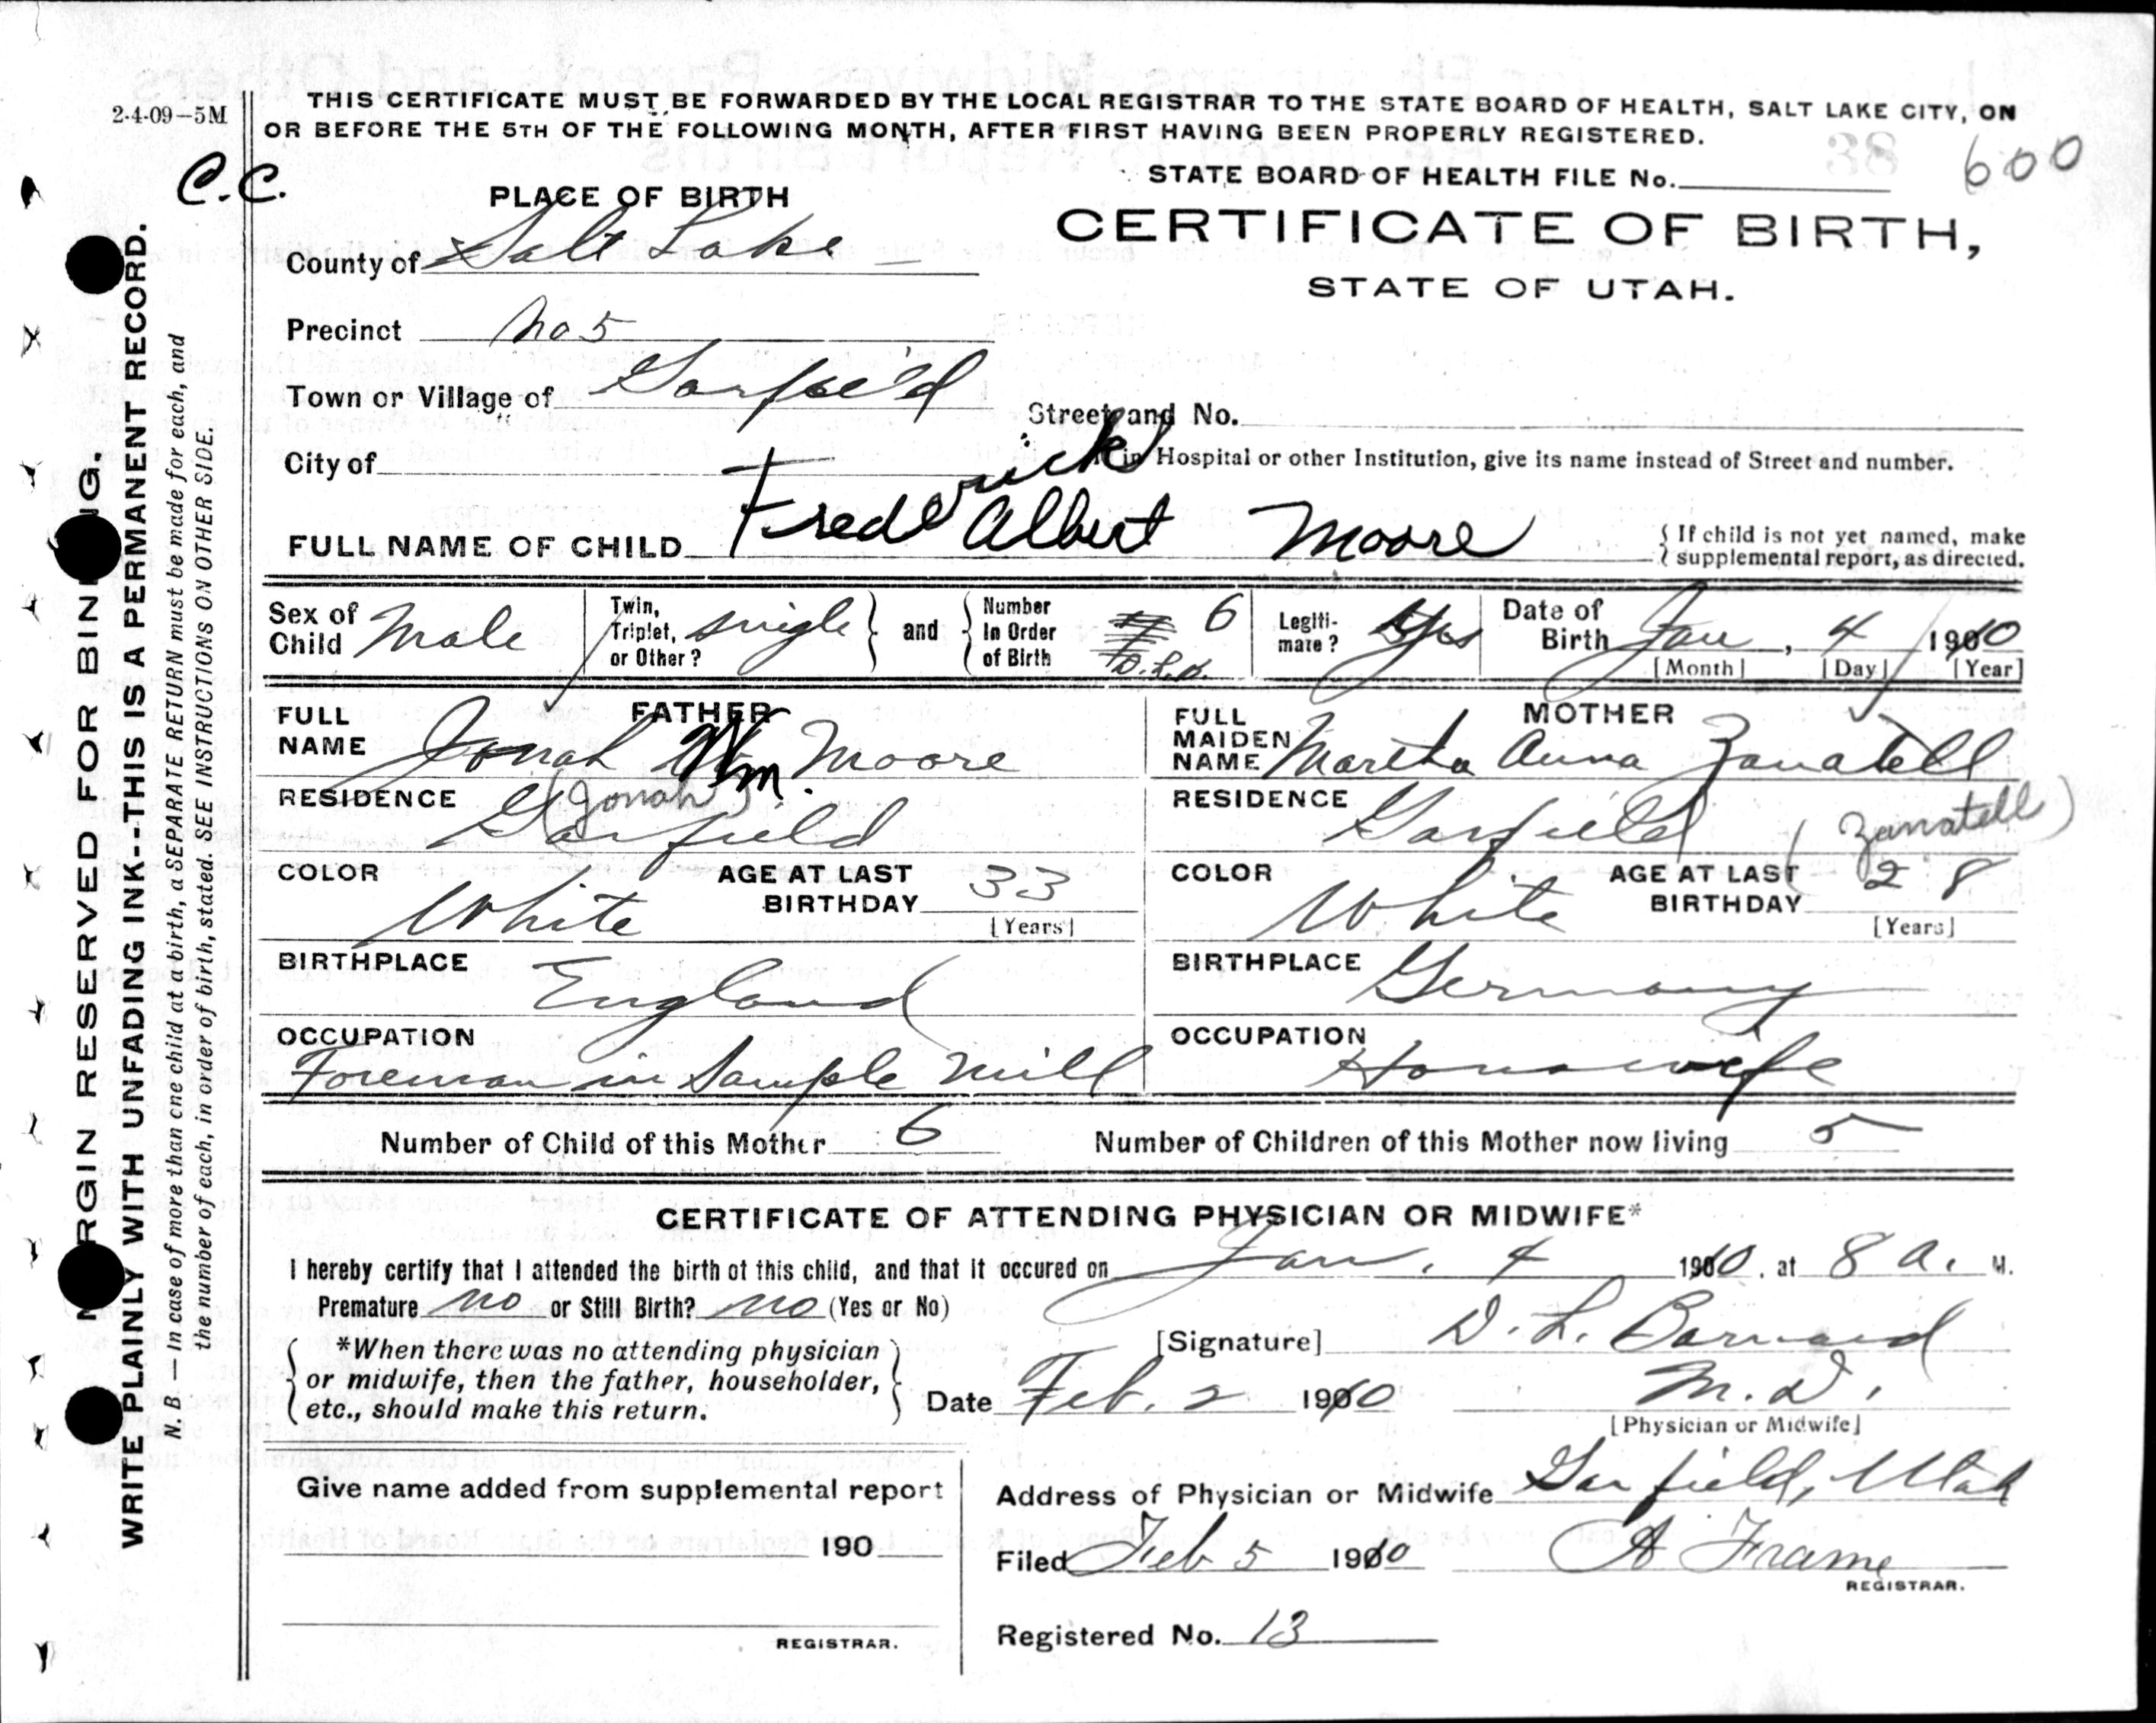 2-4-09-5M
THIS CERTIFICATE MUST BE FORWARDED BY THE LOCAL REGISTRAR TO THE STATE BOARD OF HEALTH, SALT LAKE CITY, ON
OR BEFORE THE 5TH OF THE FOLLOWING MONTH, AFTER FIRST HAVING BEEN PROPERLY REGISTERED.
STATE BOARD OF HEALTH FILE No. 600
C.C.
PLACE OF BIRTH
CERTIFICATE OF BIRTH,
STATE OF UTAH.
County of Salt Lake
Precinct No 5
Town or Village of Garfield
Street and No.
City of
in Hospital or other Institution, give its name instead of Street and number.
FULL NAME OF CHILD Frederick Albert Moore
{ If child is not yet named, make
supplemental report, as directed.
Sex of Child Male
Twin, Triplet, or Other? single } and { Number In Order of Birth 6 D.L.B.
Legiti-mate? Yes
Date of Birth Jan, 4 1910
[Month] [Day] [Year]
FATHER
FULL NAME Jonah Wm. Moore
(Jonah)
RESIDENCE Garfield
COLOR White AGE AT LAST BIRTHDAY 33
[Years]
BIRTHPLACE England
OCCUPATION Foreman in Sample Mill
MOTHER
FULL MAIDEN NAME Martha Anna Zanatell
RESIDENCE Garfield (Zanatell)
COLOR White AGE AT LAST BIRTHDAY 28
[Years]
BIRTHPLACE Germany
OCCUPATION Housewife
Number of Child of this Mother 6 Number of Children of this Mother now living 5
CERTIFICATE OF ATTENDING PHYSICIAN OR MIDWIFE*
I hereby certify that I attended the birth of this child, and that it occured on Jan. 4 1910, at 8 a. M.
Premature no or Still Birth? no (Yes or No)
[Signature] D. L. Barnard
*When there was no attending physician
or midwife, then the father, householder,
etc., should make this return.
Date Feb. 2 1910 M.D.
[Physician or Midwife]
Give name added from supplemental report
190
REGISTRAR.
Address of Physician or Midwife Garfield, Utah
Filed Feb 5 1910 A Frame
REGISTRAR.
Registered No. 13
MARGIN RESERVED FOR BINDING.
WRITE PLAINLY WITH UNFADING INK--THIS IS A PERMANENT RECORD.
N. B. — In case of more than one child at a birth, a SEPARATE RETURN must be made for each, and
the number of each, in order of birth, stated. SEE INSTRUCTIONS ON OTHER SIDE.